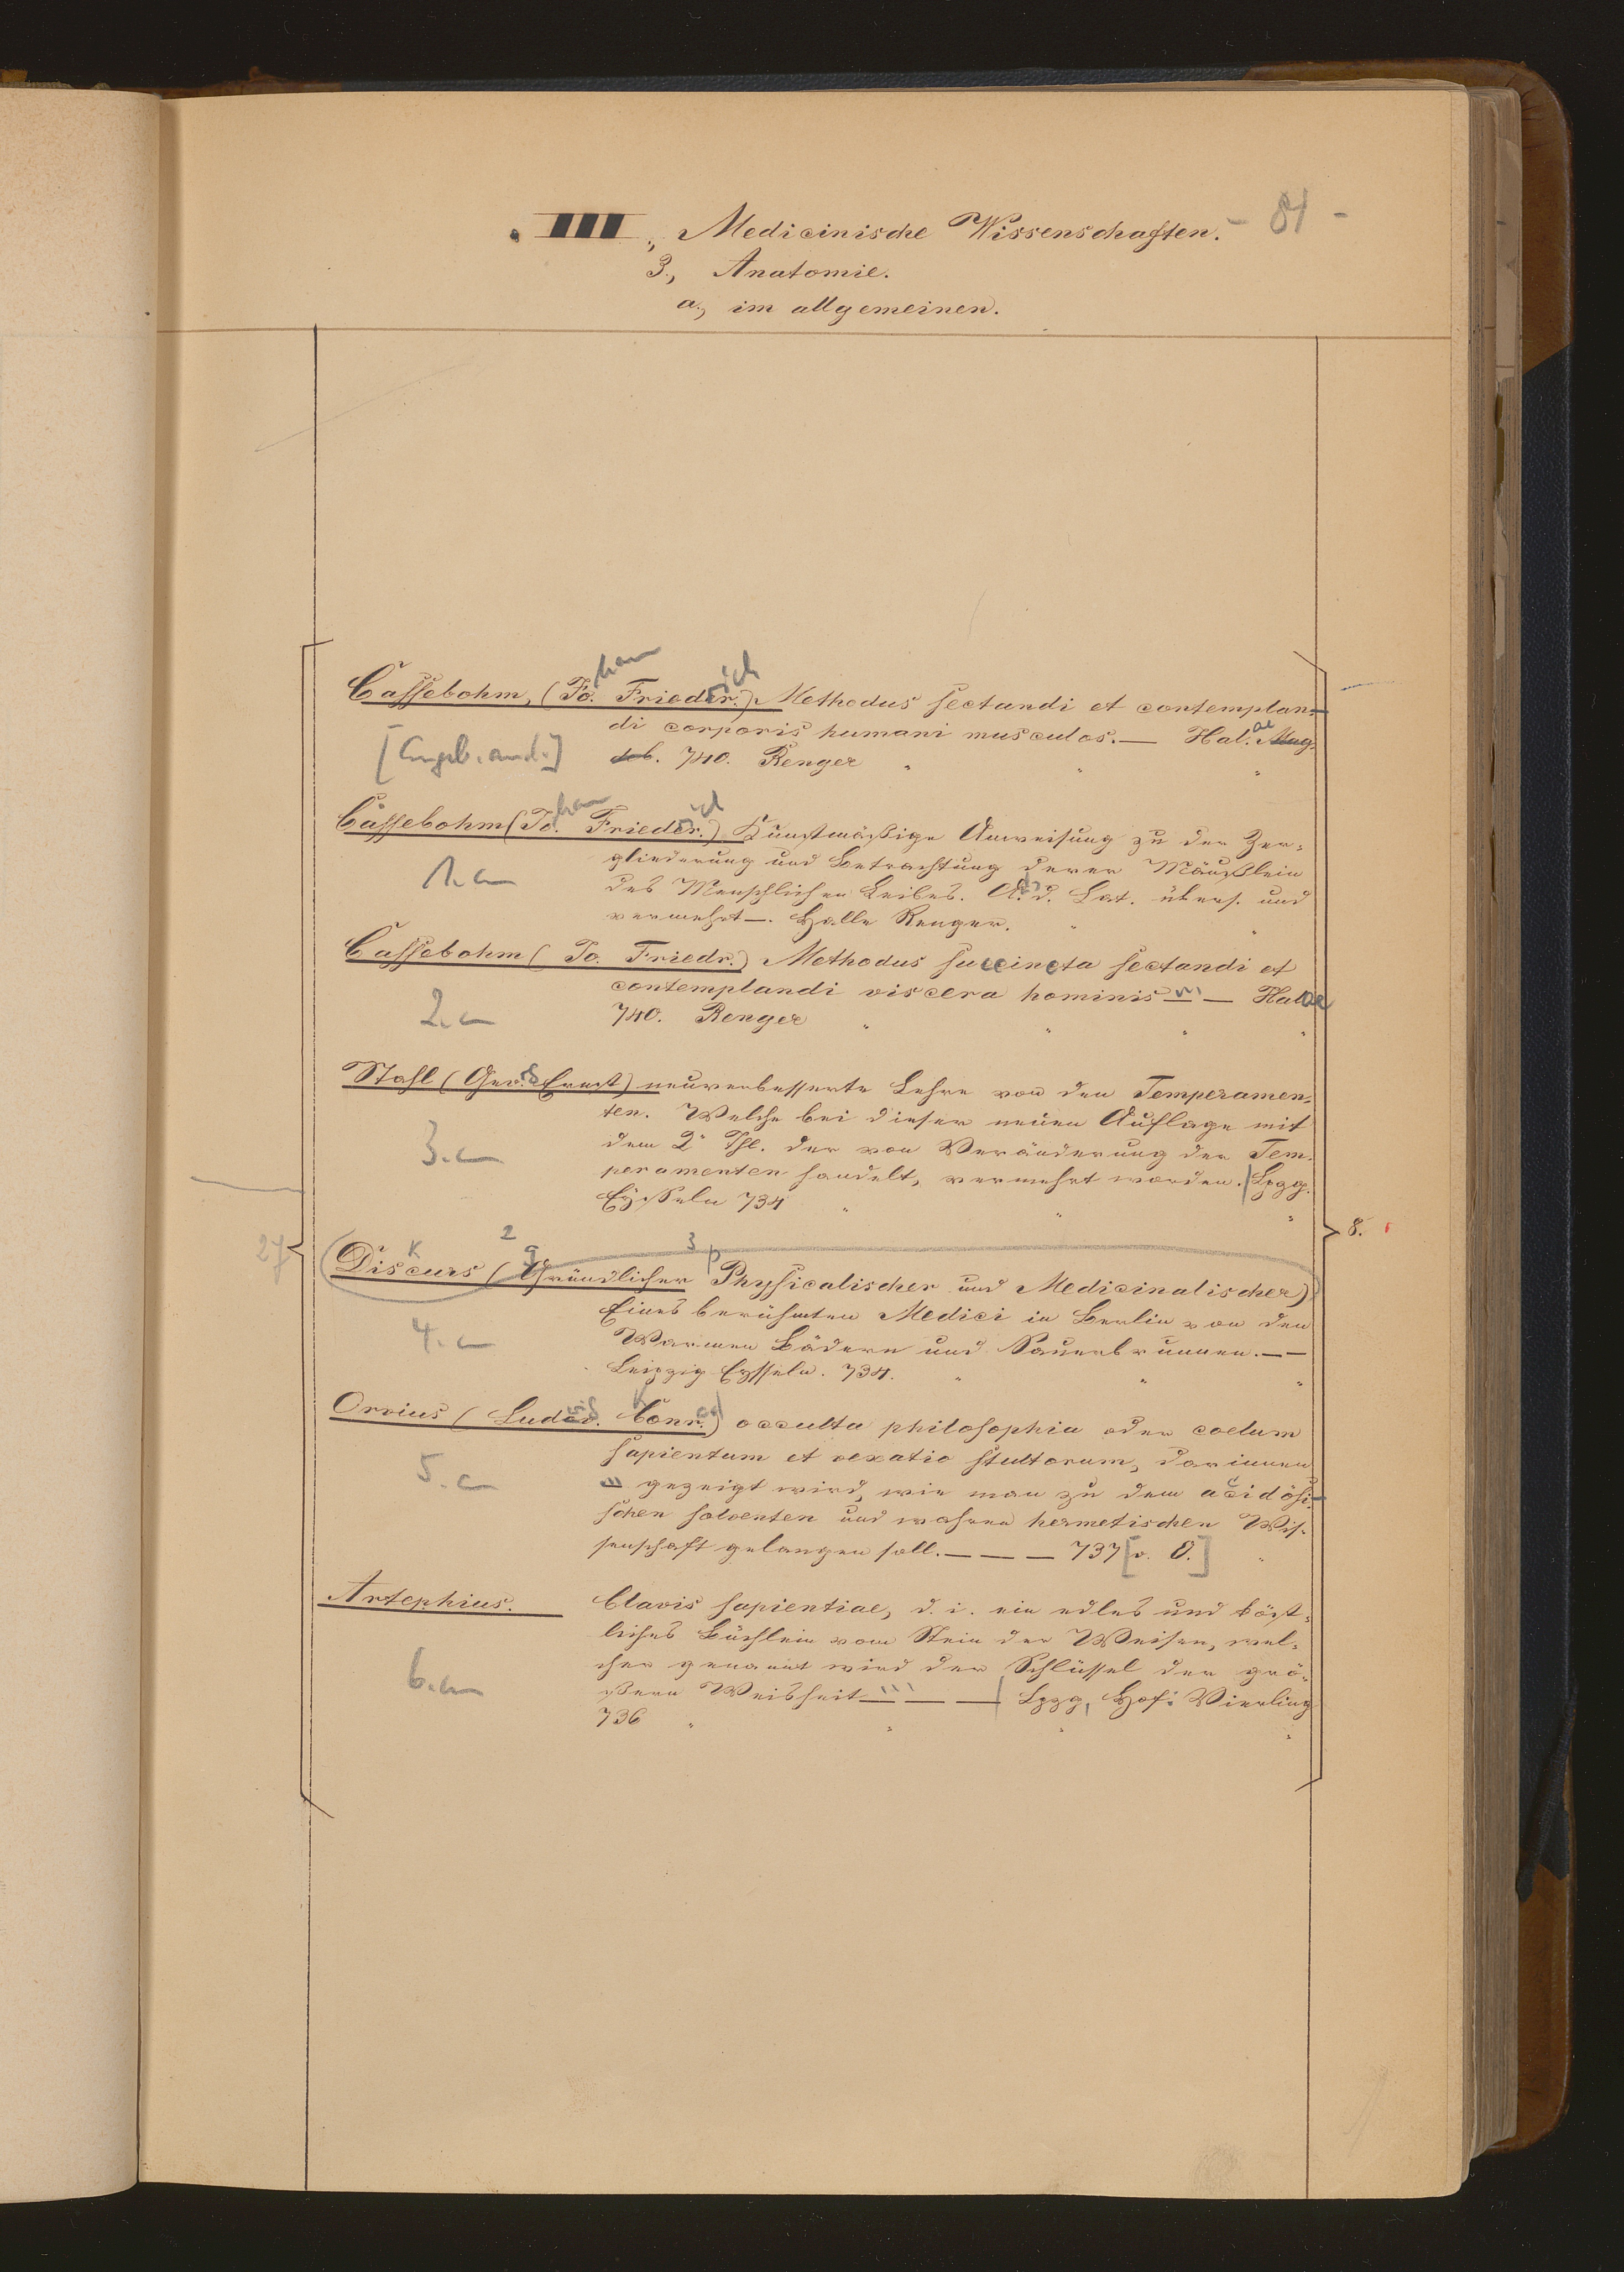 III., Medicinische Wissenschaften. - 81 -
3., Anatomie.
a., im allgemeinen.
Cassebohm, (Jo.hann Frieder.ich) Methodus sectandi et contemplan-
di corporis humani musculos. — Hal.ae Mag-
[Angeb. and.] deb. 740. Renger " " "
Cassebohm (Jo.hann Frieder.ich) Kunstmäßige Anweisung zu der Zer-
gliederung und Betrachtung derer Mäußlein
1. an
des Menschlichen Leibes. A. d. Lat. übers. und
vermehrt —. Halle Renger. " "
Cassebohm (Jo. Friedr.) Methodus succincta sectandi et
contemplandi viscera hominis — — Halae
2. an 740. Renger " " " "
Stahl (Geo.rg Ernst) neuverbesserte Lehre von den Temperamen-
ten. Welche bei dieser neuen Auflage mit
3. an dem 2n Thl. der von Veränderung der Tem-
peramenten handelt, vermehrt worden. | Lpzg.
Eysseln 734 " " " 8.
27
K 2 g 3 p
Discurs (Gründlicher Physicalischer und Medicinalischer)
Eines berühmten Medici in Berlin von den
4. an Warmen Bädern und Sauerbrunnen. — —
Leipzig Eysseln. 734. " " "
Orvius (Ludov. Conr.ad) occulta philosophia oder coelum
sapientum et vexatio stultorum, darinnen
5. an
gezeigt wird, wie man zu dem acidösi-
schen solventen und wahren hermetischen Wis-
senschaft gelangen soll. — — — 737 [o. O.] "
Artephius. Clavis sapientiae, d. i. ein edles und köst-
liches Büchlein vom Stein der Weisen, wel-
cher genannt wird der Schlüssel der grö-
6. an ßern Weisheit — — — | Lpzg, Hof: Vierling
736 " " " "